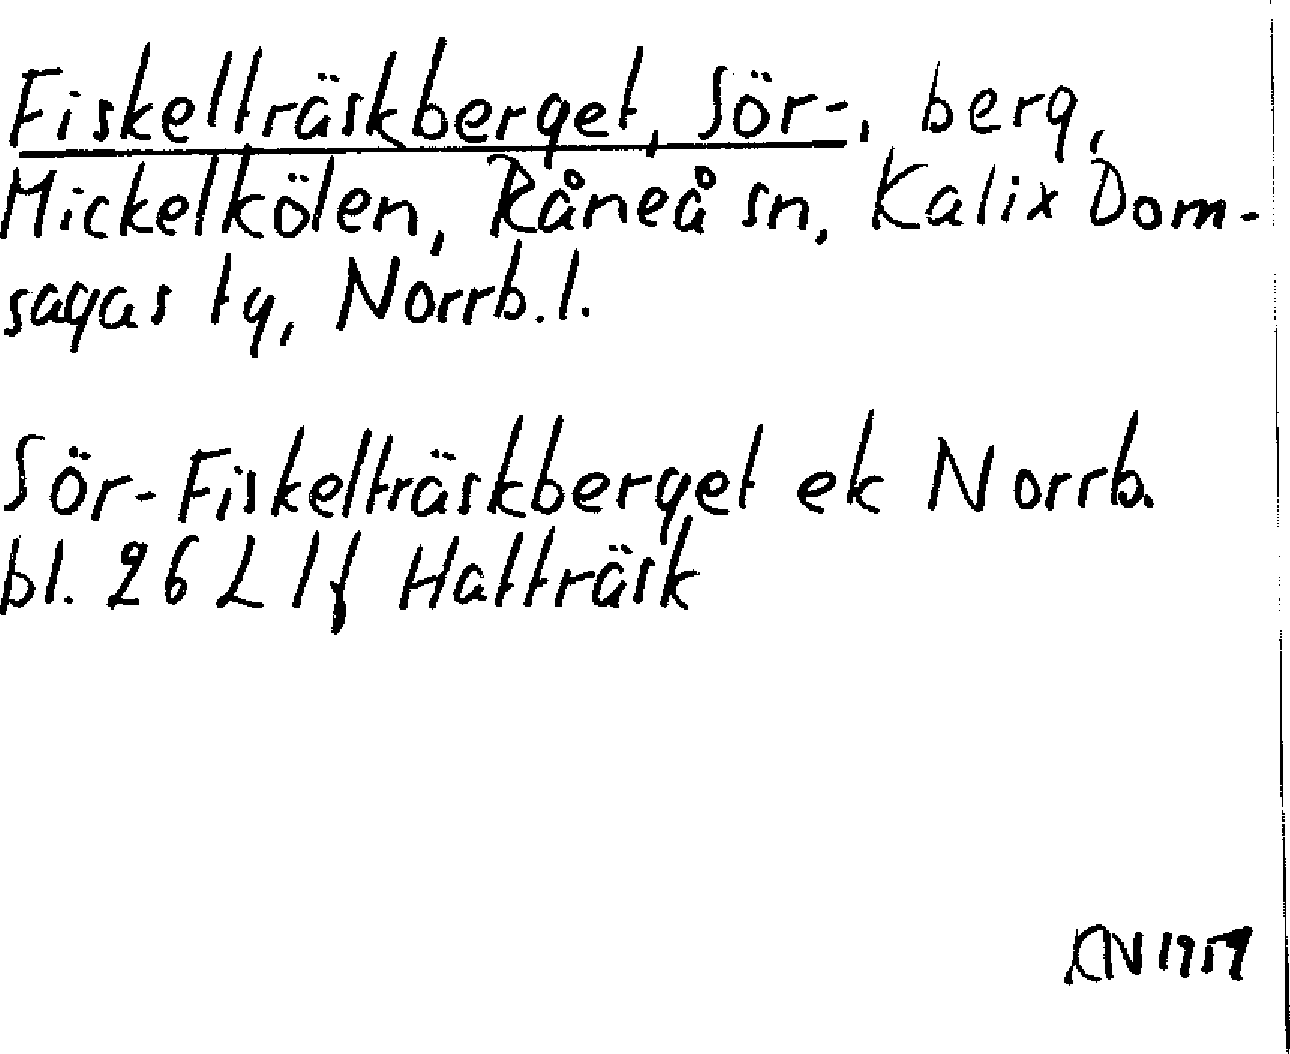 Fiskelträskberget, Sör-, berg,
Mickelkölen, Råneå sn, Kalix Dom-
sagas tg, Norrb. l.
Sör-Fiskelträskberget ek Norrb.
bl. 26 L 1f Hatträsk